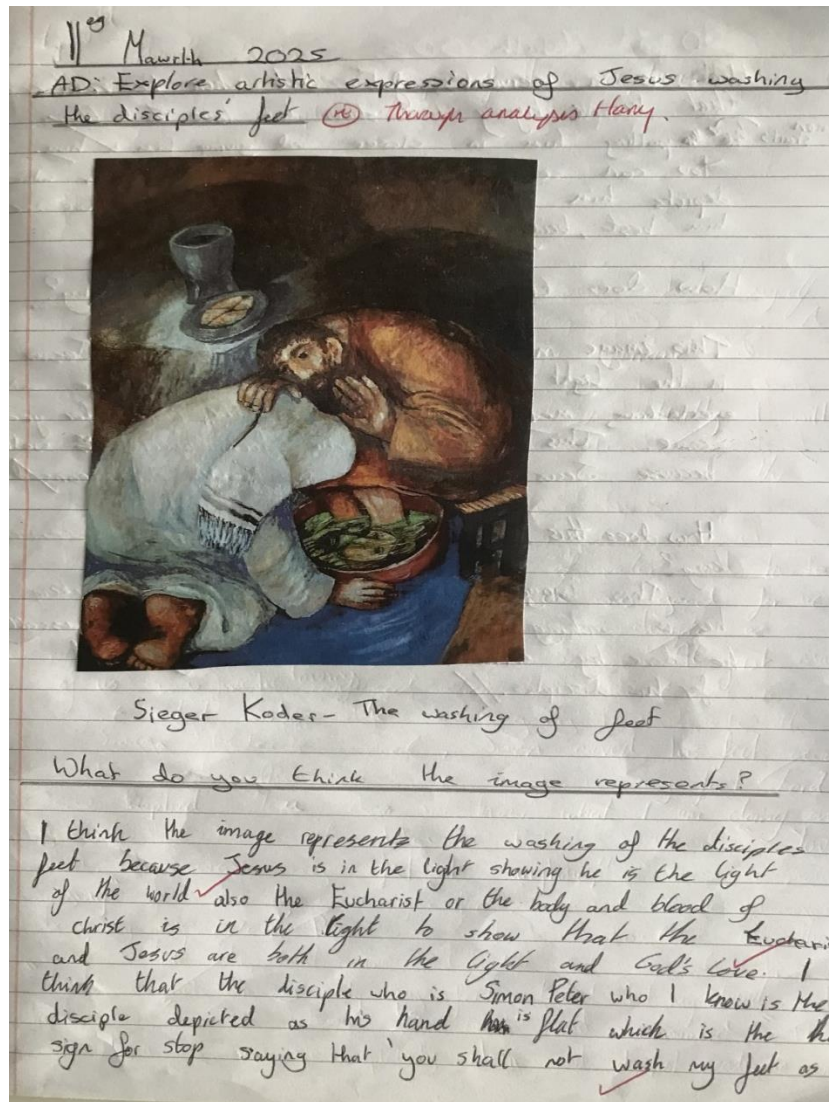 11eg Mawrth 2025
AD: Explore artistic expressions of Jesus washing
the disciples' feet Through analysis Harry.
Sieger Koder - The washing of feet
What do you think the image represents?
I think the image represents the washing of the disciples
feet because Jesus is in the light showing he is the light
of the world also the Eucharist or the body and blood of
christ is in the light to show that the Euchari
and Jesus are both in the light and God's Love. I
think that the disciple who is Simon Peter who I know is the
disciple depicted as his hand is flat which is the
sign for stop saying that 'you shall not wash my feet as